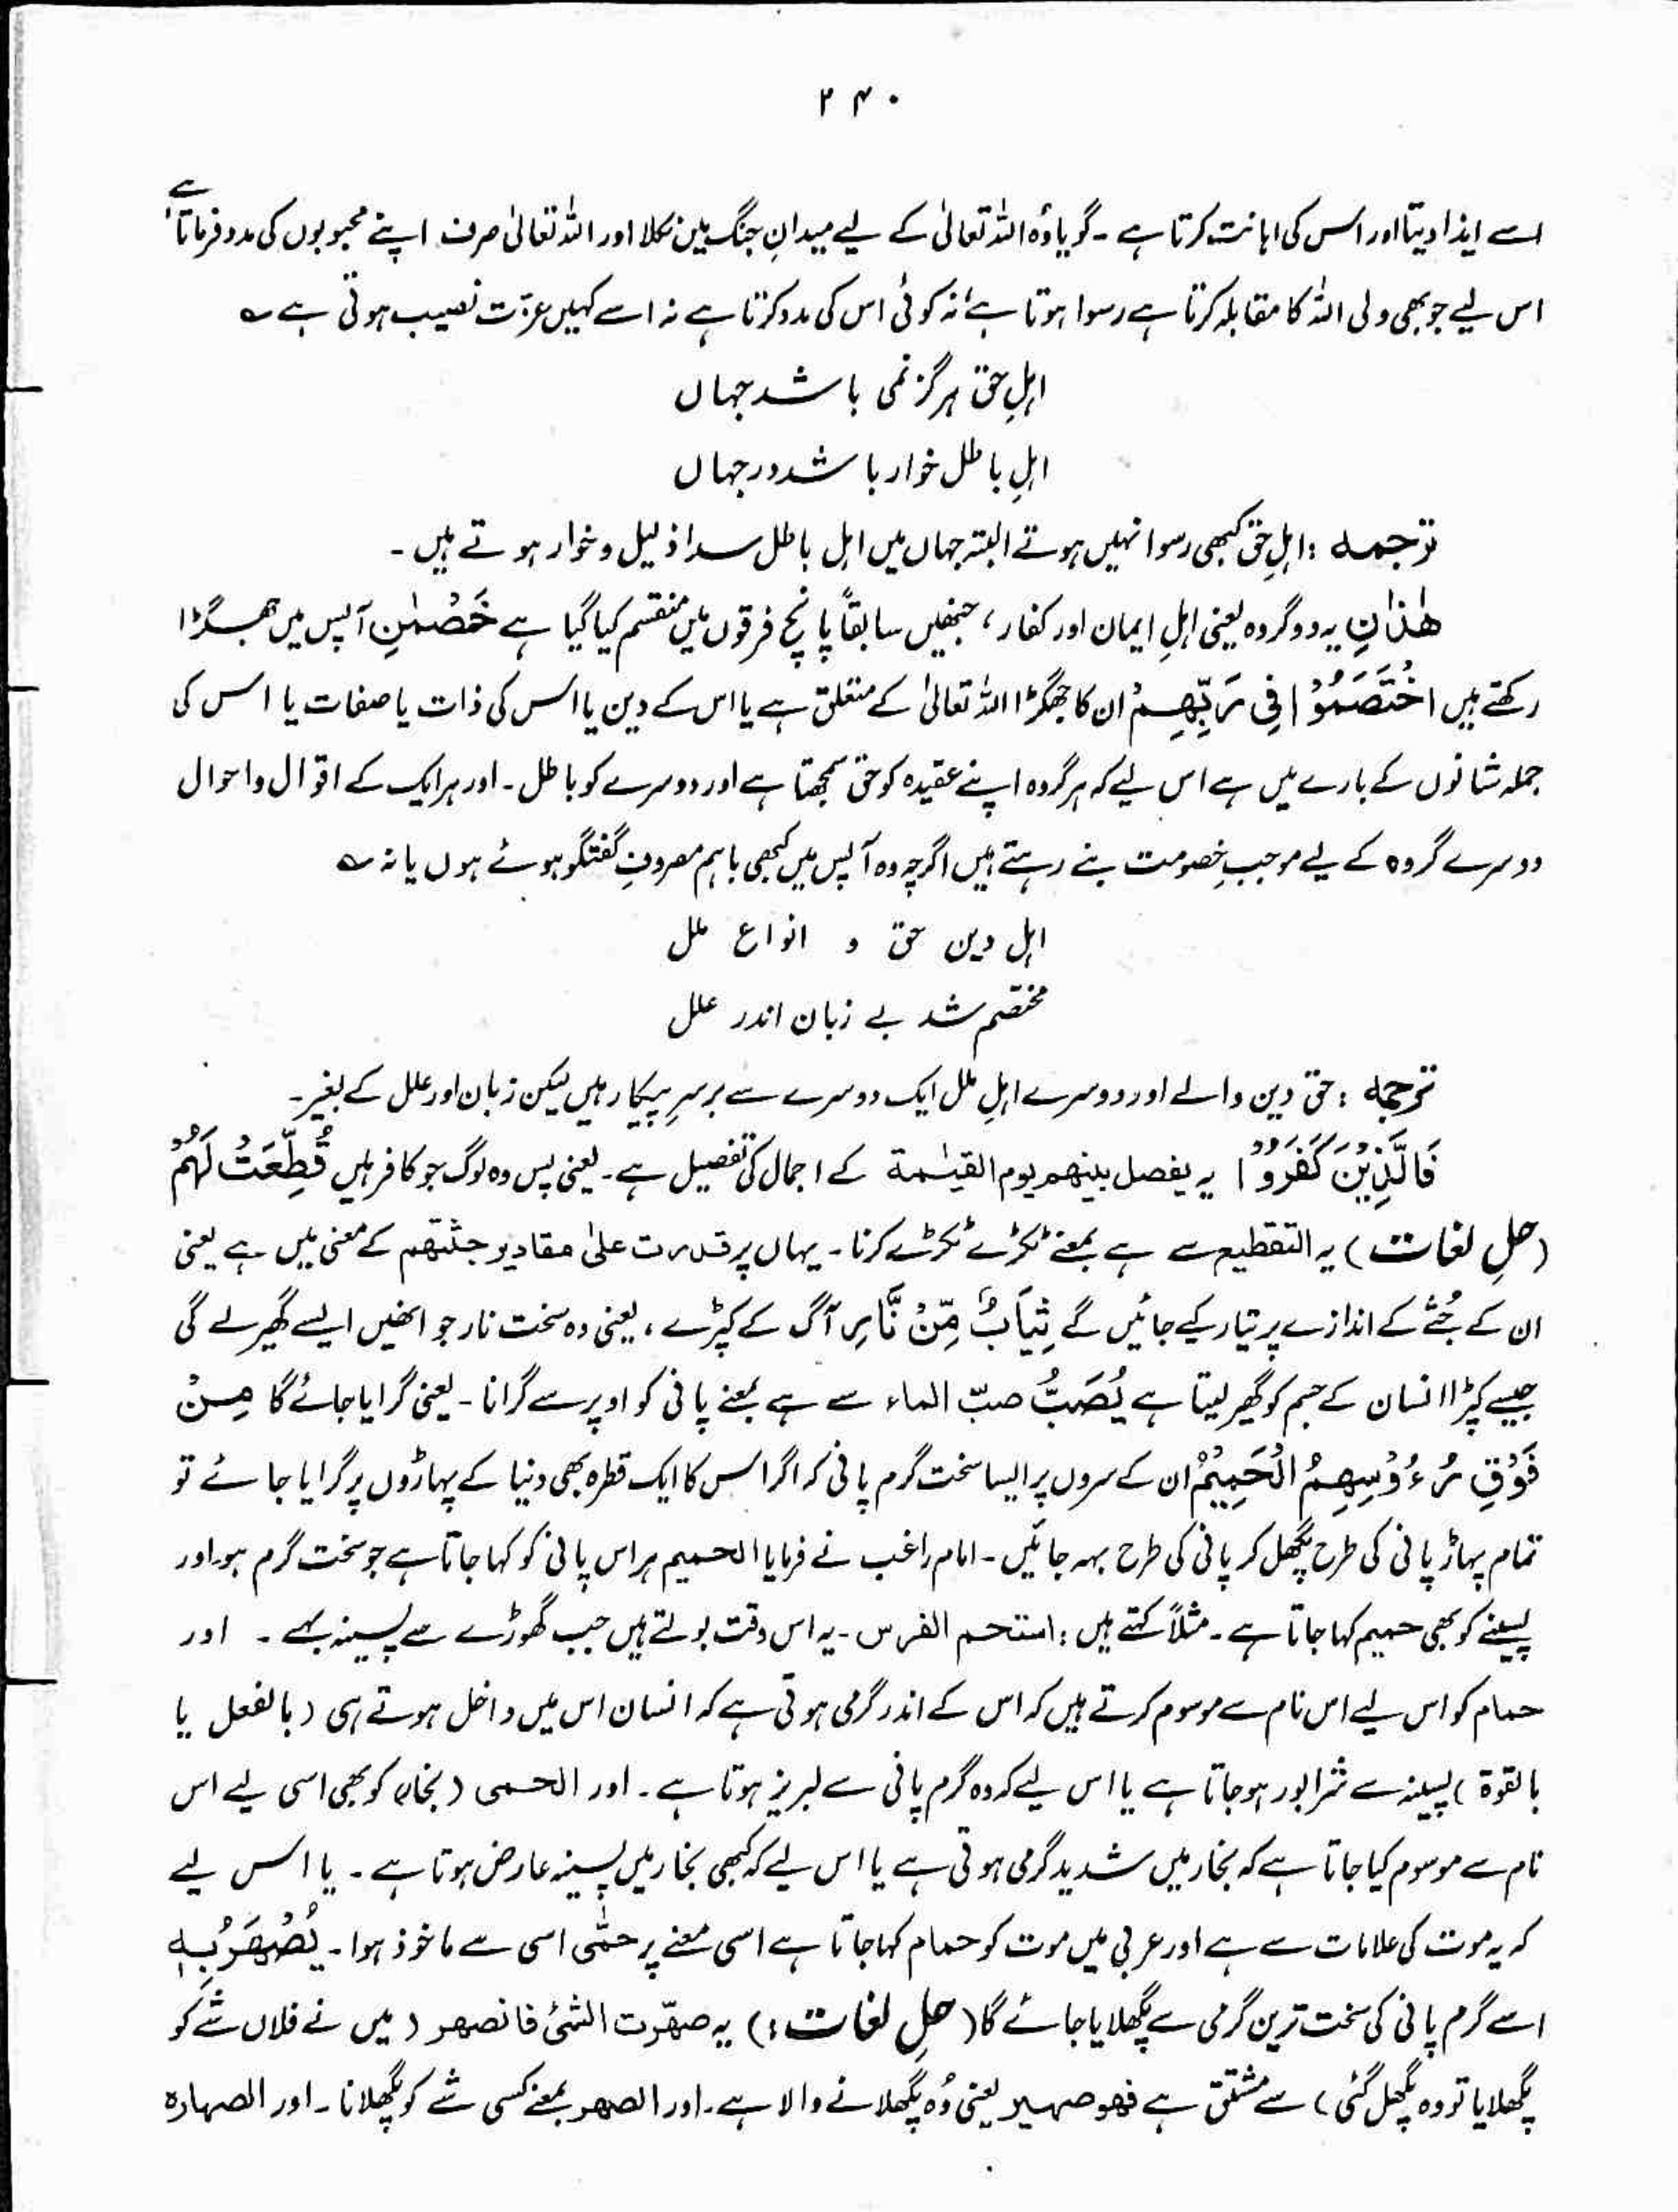 ۲۴۰
اسے ایذا دیتا اور اس کی اہانت کرتا ہے ۔ گویا وُہ اللہ تعالیٰ کے لیے میدانِ جنگ میں نکلا اور اللہ تعالیٰ صرف اپنے محبوبوں کی مدد فرماتا ہے
اس لیے جو بھی ولی اللہ کا مقابلہ کرتا ہے رسوا ہوتا ہے نہ کوئی اس کی مدد کرتا ہے نہ اسے کہیں عزّت نصیب ہوتی ہے ؎
اہلِ حق ہرگز نمی باشد جہاں
اہلِ باطل خوار باشد در جہاں
ترجمہ : اہلِ حق کبھی رسوا نہیں ہوتے البتہ جہاں میں اہل باطل سدا ذلیل و خوار ہوتے ہیں ۔
هٰذٰنِ یہ دو گروہ یعنی اہلِ ایمان اور کفار ، جنھیں سابقاً پانچ فرقوں میں منقسم کیا گیا ہے خَصْمٰنِ آپس میں جھگڑا
رکھتے ہیں اخْتَصَمُوْا فِیْ رَبِّهِمْ ان کا جھگڑا اللہ تعالیٰ کے متعلق ہے یا اس کے دین یا اس کی ذات یا صفات یا اس کی
جملہ شانوں کے بارے میں ہے اس لیے کہ ہر گروہ اپنے عقیدہ کو حق سمجھتا ہے اور دوسرے کو باطل ۔ اور ہر ایک کے اقوال و احوال
دوسرے گروہ کے لیے موجبِ خصومت بنے رہتے ہیں اگرچہ وہ آپس میں کبھی باہم مصروفِ گفتگو ہوئے ہوں یا نہ ؎
اہل دین حق و انواع ملل
مختصم شد بے زبان اندر علل
ترجمہ : حق دین والے اور دوسرے اہلِ ملل ایک دوسرے سے برسرِ پیکار ہیں لیکن زبان اور علل کے بغیر ۔
فَالَّذِیْنَ كَفَرُوْا یہ یفصل بینهم یوم القیٰمة کے اجمال کی تفصیل ہے ۔ یعنی پس وہ لوگ جو کافر ہیں قُطِّعَتْ لَهُمْ
(حلِ لغات) یہ التقطیع سے ہے بمعنے ٹکڑے ٹکڑے کرنا ۔ یہاں پر قدرت علیٰ مقادیر جثتهم کے معنی میں ہے یعنی
ان کے جُثّے کے اندازے پر تیار کیے جائیں گے ثِیَابٌ مِّنْ نَّارٍ آگ کے کپڑے ، یعنی وہ سخت نار جو انھیں ایسے گھیر لے گی
جیسے کپڑا انسان کے جسم کو گھیر لیتا ہے یُصَبُّ صبّ الماء سے ہے بمعنے پانی کو اوپر سے گرانا ۔ یعنی گرایا جائے گا مِنْ
فَوْقِ رُءُوْسِهِمُ الْحَمِیْمُ ان کے سروں پر ایسا سخت گرم پانی کہ اگر اس کا ایک قطرہ بھی دنیا کے پہاڑوں پر گرایا جائے تو
تمام پہاڑ پانی کی طرح پگھل کر پانی کی طرح بہہ جائیں ۔ امام راغب نے فرمایا الحمیم ہر اس پانی کو کہا جاتا ہے جو سخت گرم ہو اور
پسینے کو بھی حمیم کہا جاتا ہے ۔ مثلاً کہتے ہیں : استحم الفرس ۔ یہ اس وقت بولتے ہیں جب گھوڑے سے پسینہ بہے ۔ اور
حمام کو اس لیے اس نام سے موسوم کرتے ہیں کہ اس کے اندر گرمی ہوتی ہے کہ انسان اس میں داخل ہوتے ہی (بالفعل یا
بالقوۃ) پسینہ سے شرابور ہو جاتا ہے یا اس لیے کہ وہ گرم پانی سے لبریز ہوتا ہے ۔ اور الحمی (بخار) کو بھی اسی لیے اس
نام سے موسوم کیا جاتا ہے کہ بخار میں شدید گرمی ہوتی ہے یا اس لیے کہ کبھی بخار میں پسینہ عارض ہوتا ہے ۔ یا اس لیے
کہ یہ موت کی علامات سے ہے اور عربی میں موت کو حمام کہا جاتا ہے اسی معنے پر حمّٰی اسی سے ماخوذ ہوا ۔ یُصْهَرُ بِهٖ
اسے گرم پانی کی سخت ترین گرمی سے پگھلایا جائے گا (حلِ لغات :) یہ صهّرت الشیٔ فانصهر (میں نے فلاں شے کو
پگھلایا تو وہ پگھل گئی) سے مشتق ہے فهو صهیر یعنی وُہ پگھلانے والا ہے ۔ اور الصهر بمعنے کسی شے کو پگھلانا ۔ اور الصهارہ